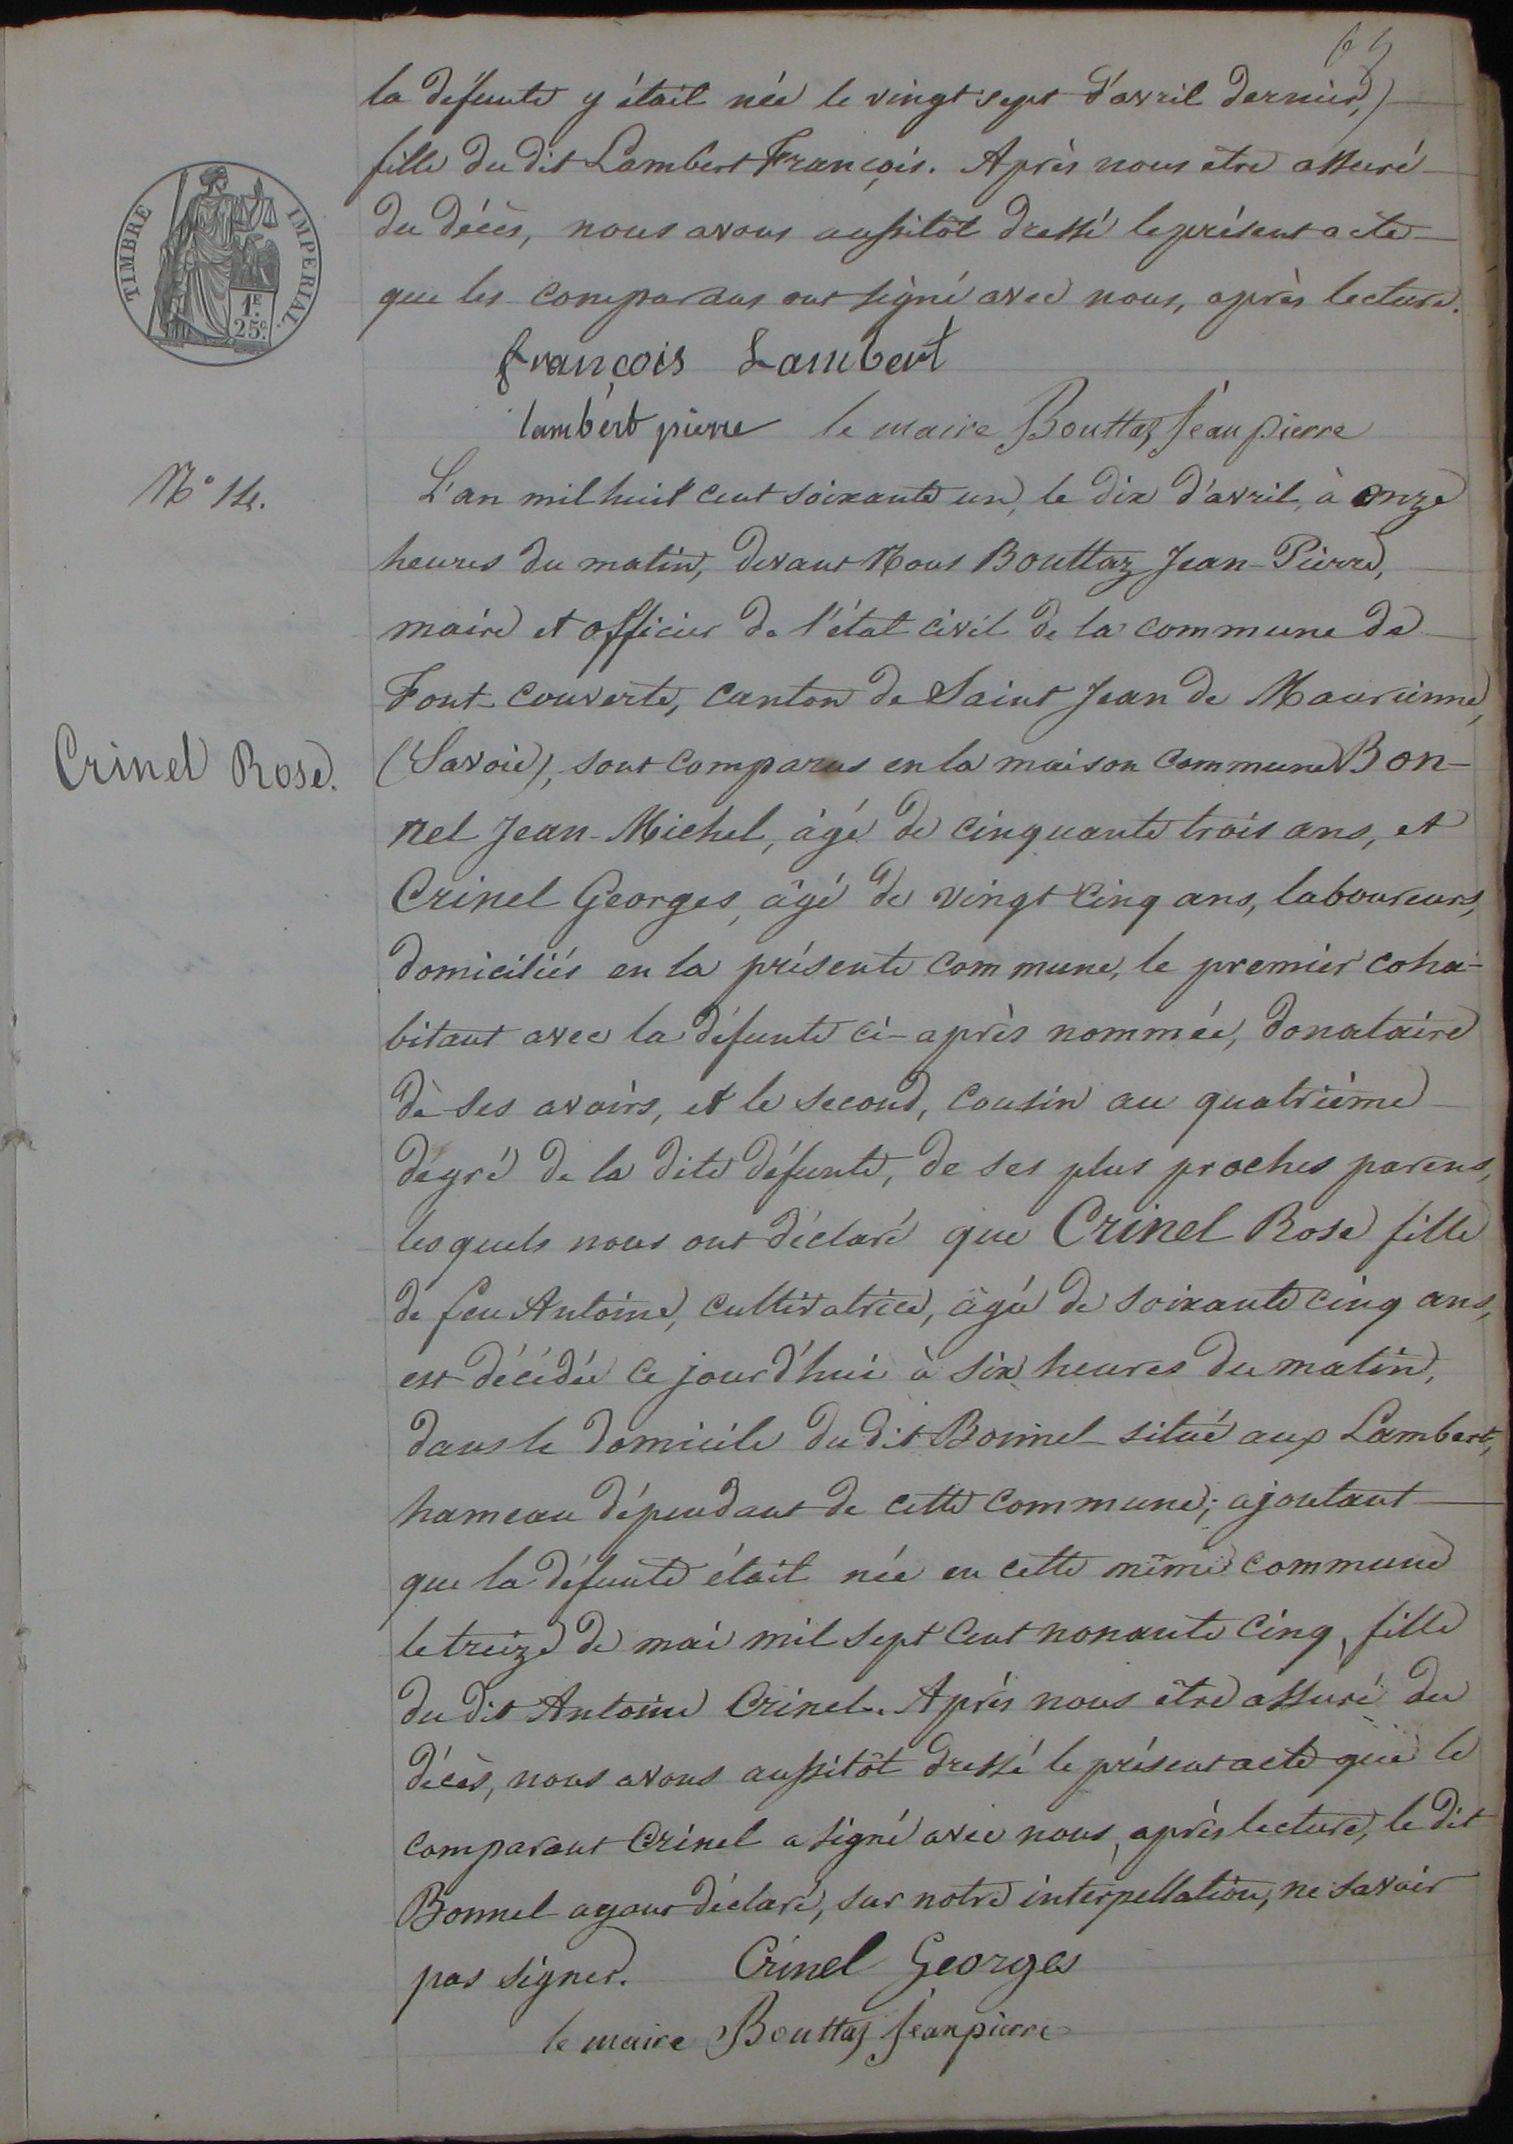 la défunte y était née le vingt sept d'avril dernier,)
fille du dit Lambert François. Après nous être assuré
du décès, nous avons aussitôt dressé le présent acte
que les comparans ont signé avec nous, après lecture.
TIMBRE IMPERIAL.
1F.
25c.
françois Lambert
lambért pierre le maire Bouttaz Jéan pierre
N° 14.
L'an mil huit cent soixante un, le dix d'avril, à onze
heures du matin, devant Nous Bouttaz Jean-Pierre,
maire et officier de l'état civil de la commune de
Font-couverte, canton de Saint Jean de Maurienne,
Crinel Rose.
(Savoie), sont comparus en la maison commune Bon-
nel Jean-Michel, âgé de cinquante trois ans, et
Crinel Georges, âgé de vingt cinq ans, laboureurs,
domiciliés en la présente commune, le premier coha-
bitant avec la défunte ci-après nommée, donataire
dè ses avoirs, et le second, cousin au quatrième
dégré de la dite défunte, de ses plus proches parens,
lesquels nous ont déclaré que Crinel Rose fille
de feu Antoine, cultivatrice, âgée de soixante cinq ans,
est décédée ce jourd'hui à six heures du matin,
dans le domicile du dit Bonnel situé aux Lambert,
hameau dépendant de cette commune; ajoutant
que la défunte était née en cette même commune
le treize de mai mil sept cent nonante cinq, fille
du dit Antoine Crinel. Après nous être assuré du
décès, nous avons aussitôt dressé le présent acte que le
comparant Crinel a signé avec nous, après lecture, le dit
Bonnel ayant déclaré, sur notre interpellation, ne savoir
pas signer. Crinel Georges
le maire Bouttaz Jéan pierre